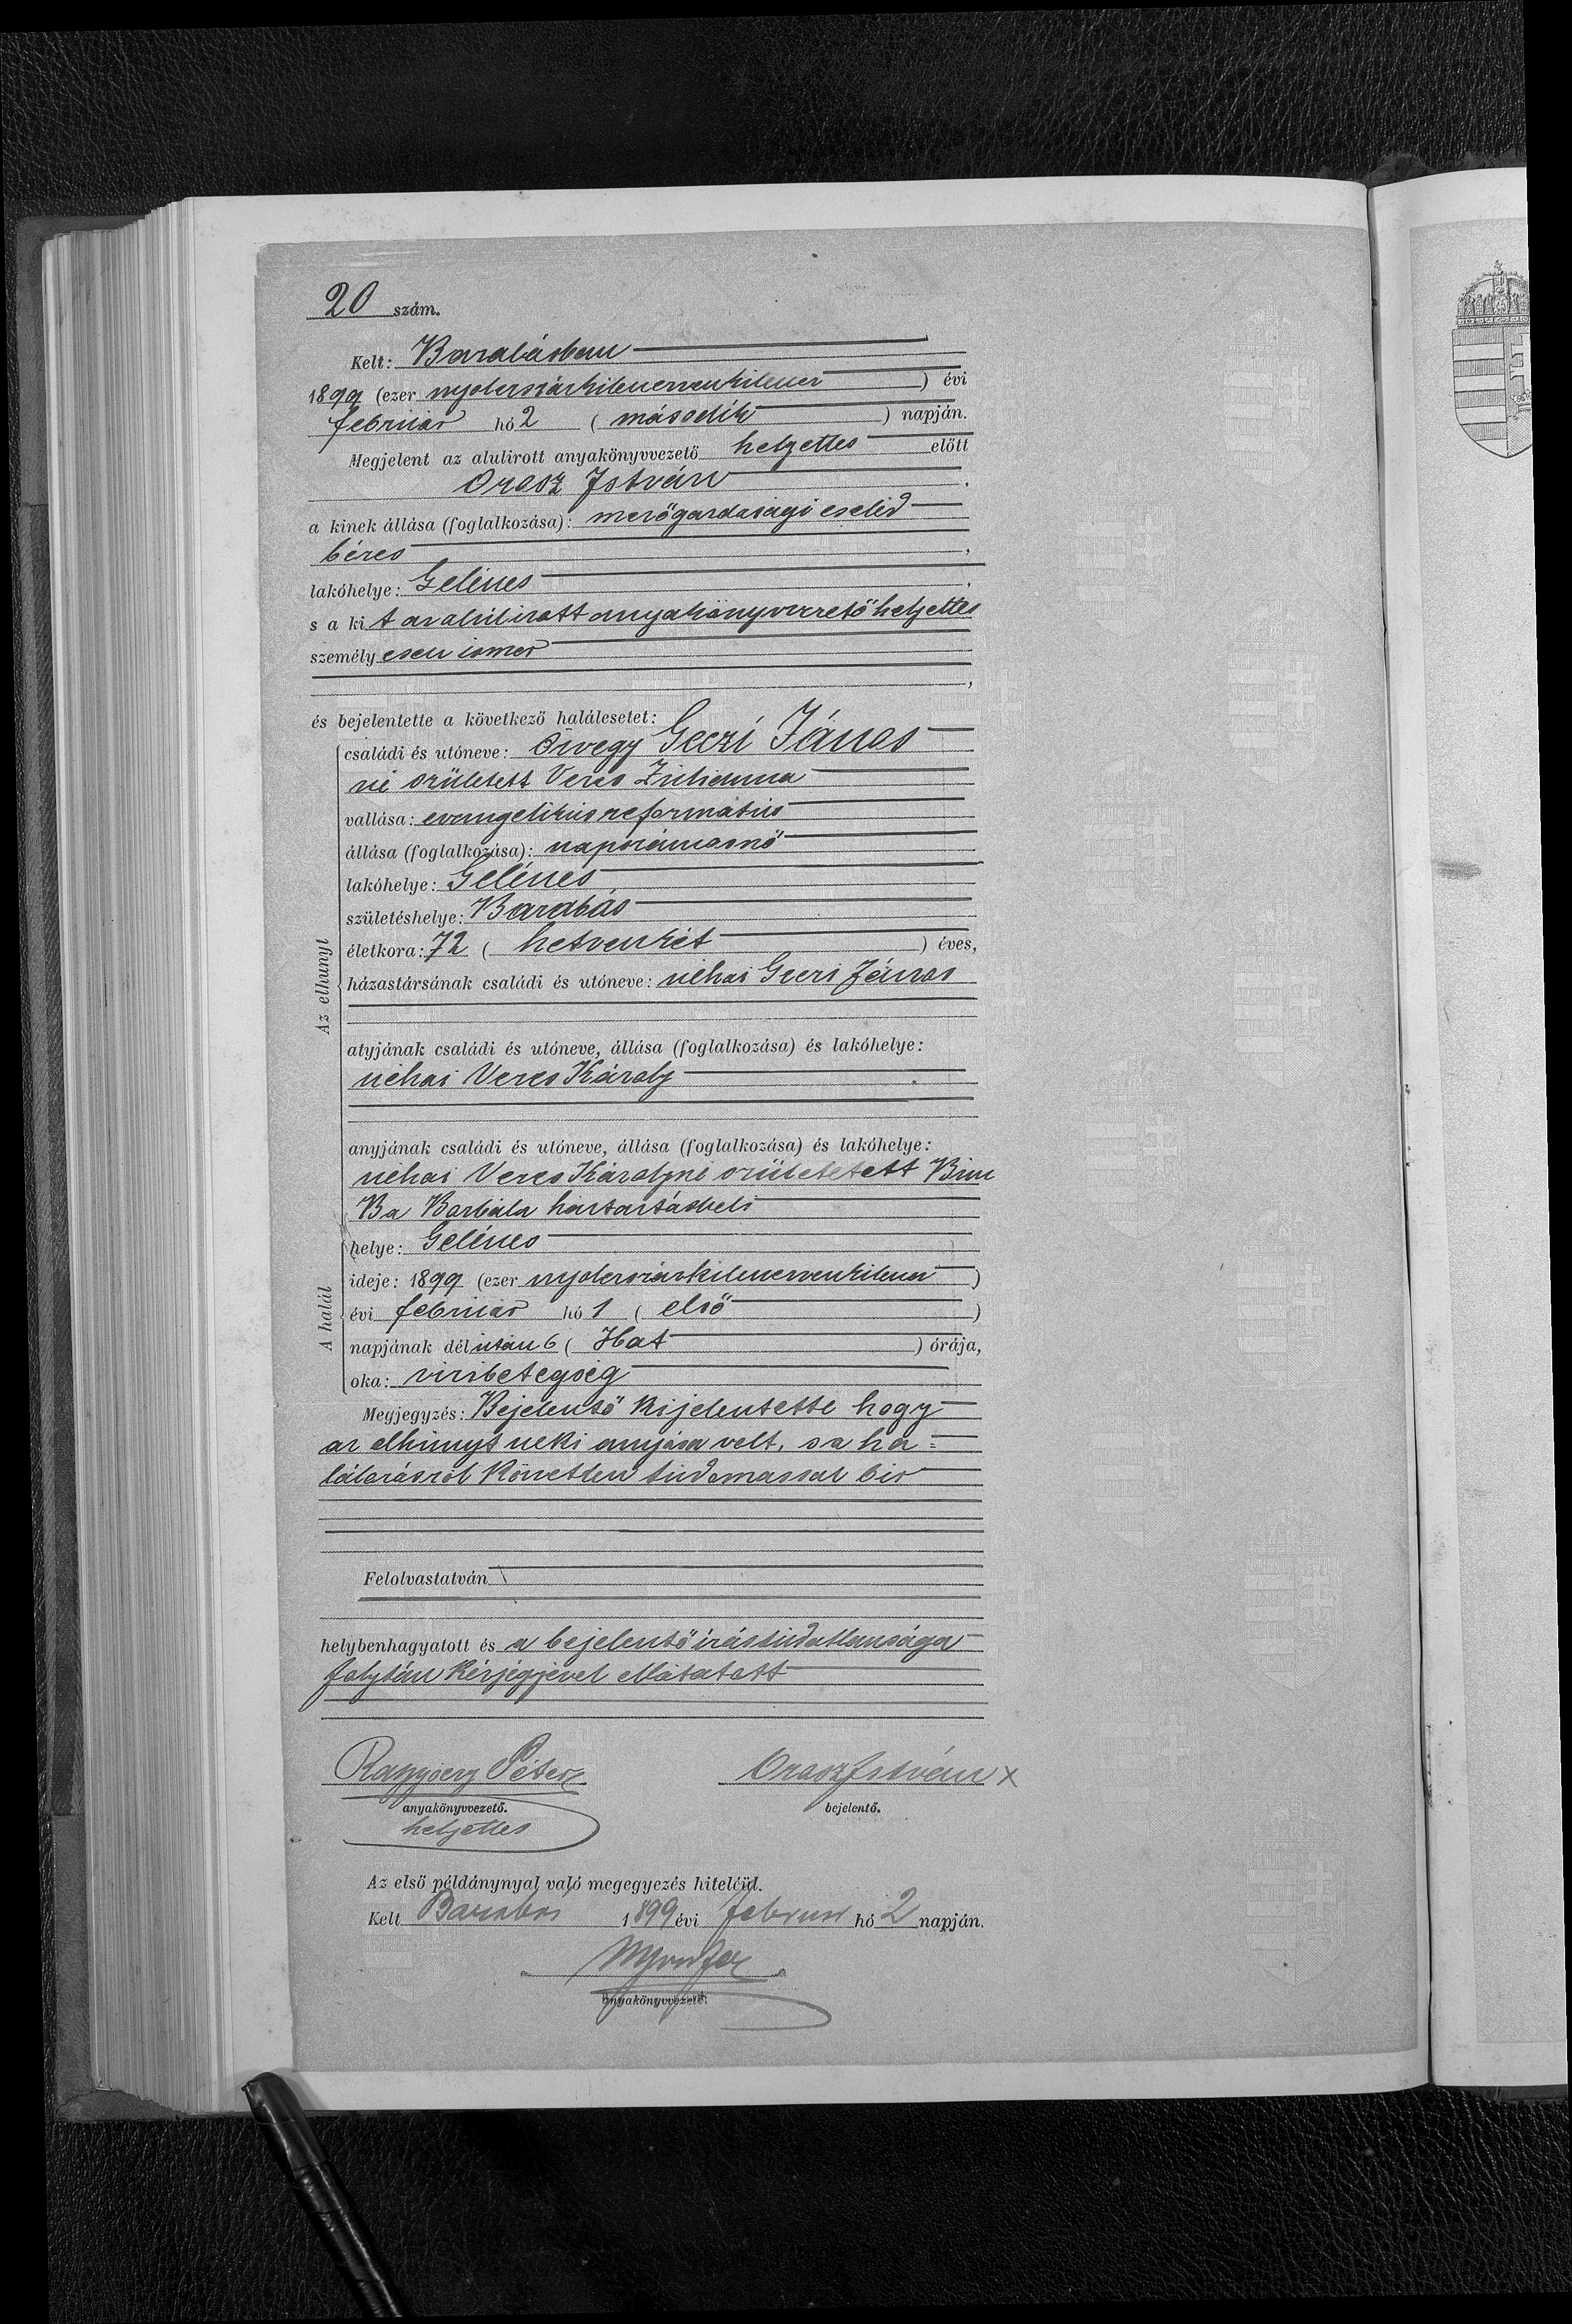 20 szám.
Kelt: Barabásban
1899 (ezer nyolczszázkilenczvenkilencz) évi
február hó 2 (második) napján.
Megjelent az alulirott anyakönyvvezető helyettes előtt
Orosz István
a kinek állása (foglalkozása): mezőgazdasági cseléd
béres,
lakóhelye: Gelénes,
s a kit az alúlirott anyakönyvvezető helyettes
személyesen ismer
és bejelentette a következő halálesetet:
Az elhunyt
családi és utóneve: Özvegy Géczi János
né született Veres Zsuzsánna
vallása: evangélikus református
állása (foglalkozása): napszámosnő
lakóhelye: Gelénes
születéshelye: Barabás
életkora: 72 (hetvenkét) éves,
házastársának családi és utóneve: néhai Géczi János
atyjának családi és utóneve, állása (foglalkozása) és lakóhelye:
néhai Veres Károly
anyjának családi és utóneve, állása (foglalkozása) és lakóhelye:
néhai Veres Károlyné született
Borbála háztartásbeli
A halál
helye: Gelénes
ideje: 1899 (ezer nyolczszázkilenczvenkilencz)
évi február hó 1 (első)
napjának délután 6 (Hat) órája,
oka: vízibetegség
Megjegyzés: Bejelentő kijelentette hogy
az elhunyt neki anyósa volt, s a ha=
lálozásról közvetlen tudomással bir
Felolvastatván
helybenhagyatott és a bejelentő írástudatlansága
folytán kézjegyével elláttatott
Péter
anyakönyvvezető.
helyettes
Orosz István x
bejelentő.
Az első példánynyal való megegyezés hiteléül.
Kelt Barabás 1899 évi február hó 2 napján.
anyakönyvvezető.